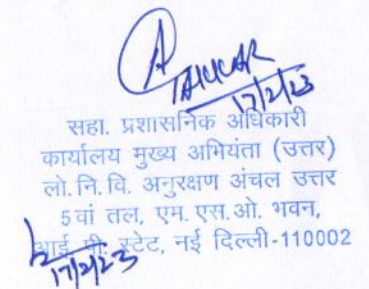 A
17/2/23
सहा. प्रशासनिक अधिकारी
कार्यालय मुख्य अभियंता (उत्तर)
लो. नि. वि. अनुरक्षण अंचल उत्तर
5वां तल, एम. एस. ओ. भवन,
आई. पी. स्टेट, नई दिल्ली-110002
17/2/23